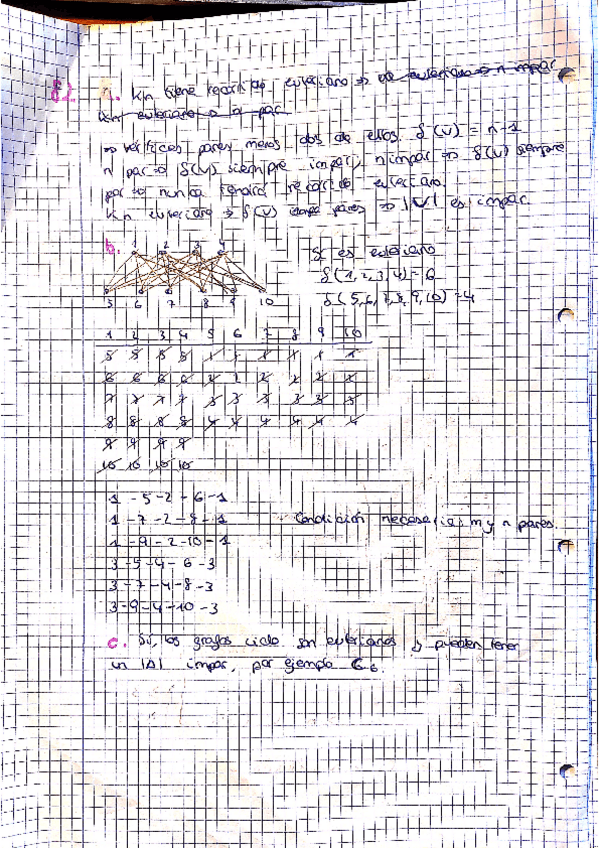 a. Kn tiene recorrido euleriano ⇒
⇒ vértices pares menos dos de ellos. δ(v) = n-1
n par ⇒ δ(v) siempre impar, n impar ⇒ δ(v) siempre
par ⇒ nunca tendrá recorrido euleriano.
Kn euleriano ⇒ δ(v) pares ⇒ |V| es impar
b. 1 2 3 4
5 6 7 8 9 10
Sí es euleriano
δ(1,2,3,4) = 6
δ(5,6,7,8,9,10) = 4
1 2 3 4 5 6 7 8 9 10
5 5 5 5 1 1 1 1 1 1
6 6 6 6 2 2 2 2 2 2
7 7 7 7 3 3 3 3 3 3
8 8 8 8 4 4 4 4 4 4
9 9 9 9
10 10 10 10
1 - 5 - 2 - 6 - 1
1 - 7 - 2 - 8 - 1 Condición necesaria: m y n pares.
1 - 9 - 2 - 10 - 1
3 - 5 - 4 - 6 - 3
3 - 7 - 4 - 8 - 3
3 - 9 - 4 - 10 - 3
c. Sí, los grafos ciclo son eulerianos y pueden tener
un |A| impar, por ejemplo